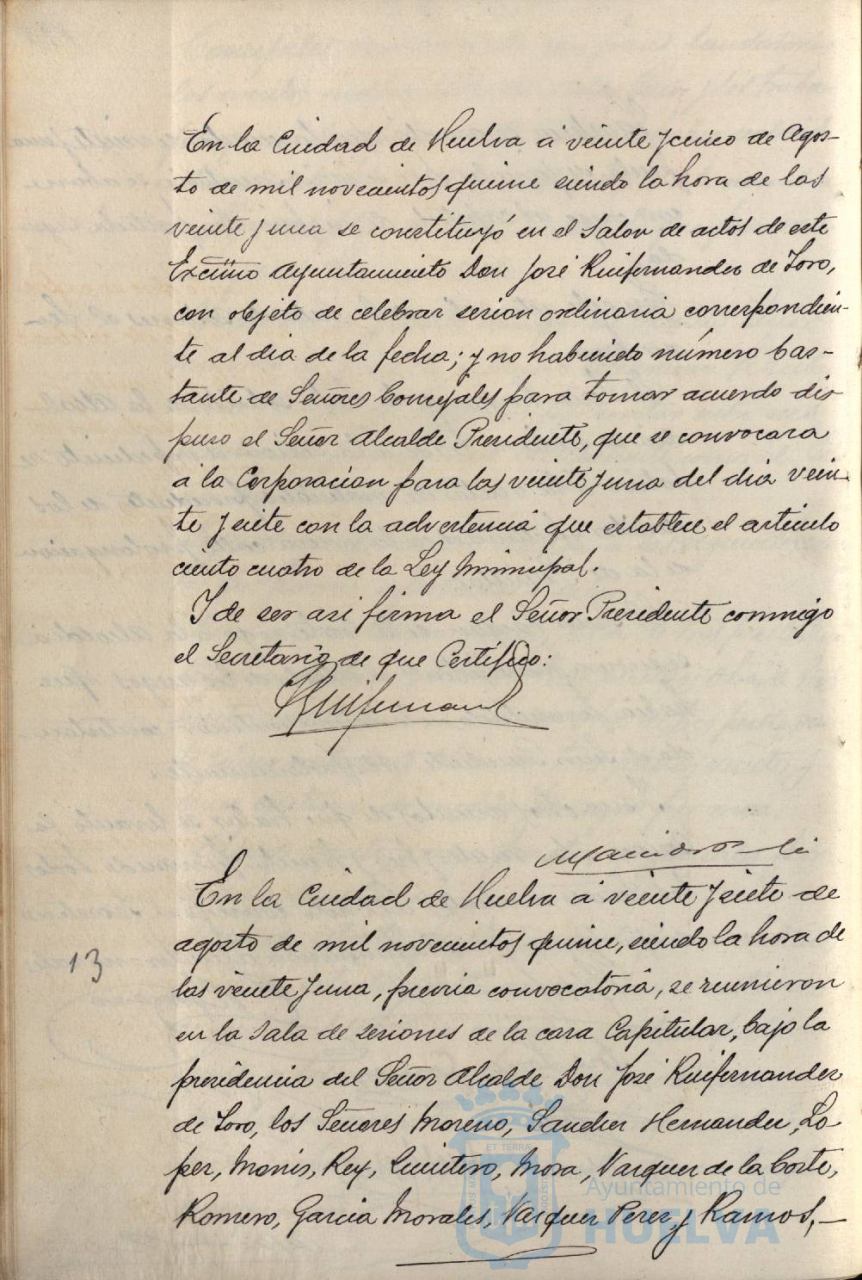 En la Ciudad de Huelva á veinte y cinco de Agos-
to de mil novecientos quince siendo la hora de las
veinte y una se constituyó en el Salon de actos de este
Excmo Ayuntamiento Don José Ruifernandez de Toro,
con objeto de celebrar sesion ordinaria correspondien-
te al dia de la fecha; y no habiendo número bas-
tante de Señores Concejales para tomar acuerdo dis
puso el Señor Alcalde Presidente, que se convocara
á la Corporacion para las veinte y una del dia vein-
te y siete con la advertencia que establece el artículo
ciento cuatro de la Ley Municipal.
Y de ser asi firma el Señor Presidente conmigo
el Secretario de que Certifico:
Ruifernand
En la Ciudad de Huelva á veinte y siete de
agosto de mil novecientos quince, siendo la hora de
13
las veinte y una, previa convocatoria, se reunieron
en la sala de sesiones de la casa Capitular, bajo la
presidencia del Señor Alcalde Don José Ruifernandez
de Toro, los Señores Moreno, Sanchez Hernandez, Lo
pez, Monis, Rey, Quintero, Mora, Vazquez de la Corte,
Romero, Garcia Morales, Vazquez Perez, y Ramos,
ET TERRAE
Ayuntamiento de
HUELVA